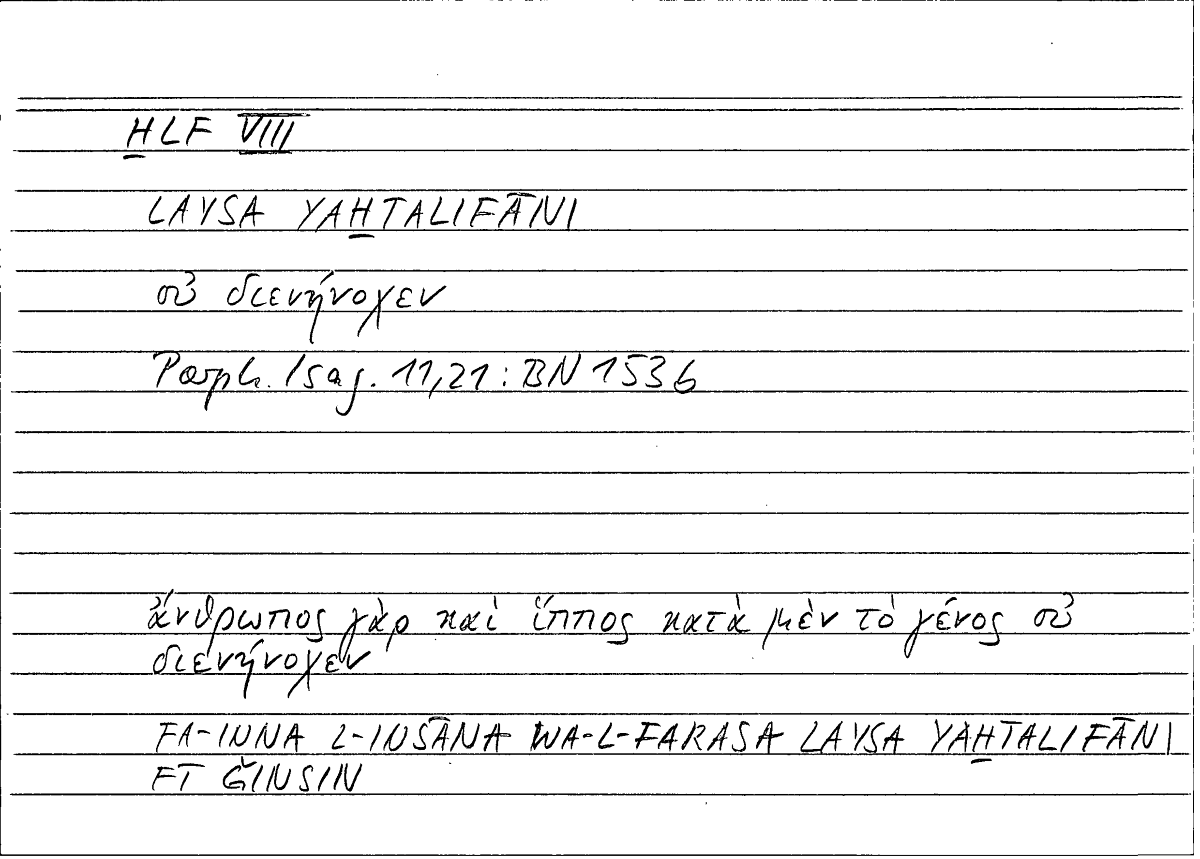 H̱LF VIII
LAYSA YAH̱TALIFĀNI
οὐ διενήνοχεν
Porph. Isag. 11,21: BN 153b
ἄνθρωπος γὰρ καὶ ἵππος κατὰ μὲν τὸ γένος οὐ
διενήνοχεν
FA-INNA L-INSĀNA WA-L-FARASA LAYSA YAH̱TALIFĀNI
FĪ ǦINSIN